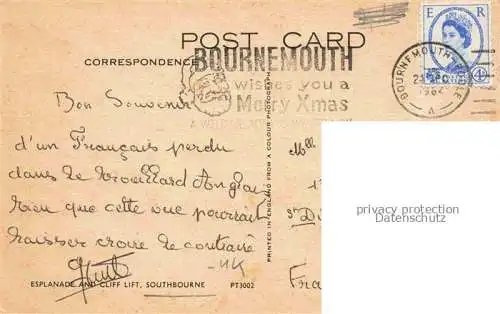 POST CARD
E R
CORRESPONDENCE
BOURNEMOUTH
wishes you a
Merry Xmas
BOURNEMOUTH
1962
A
4D
Bon Souvenir
d'un Français perdu
dans le brouillard Anglais
bien que cette vue pourrait
laisser croire le contraire
Mlle
1
St Di
Fra
UK
PRINTED IN ENGLAND FROM A COLOUR PHOTOGRAPH
privacy protection
Datenschutz
ESPLANADE AND CLIFF LIFT, SOUTHBOURNE PT3002